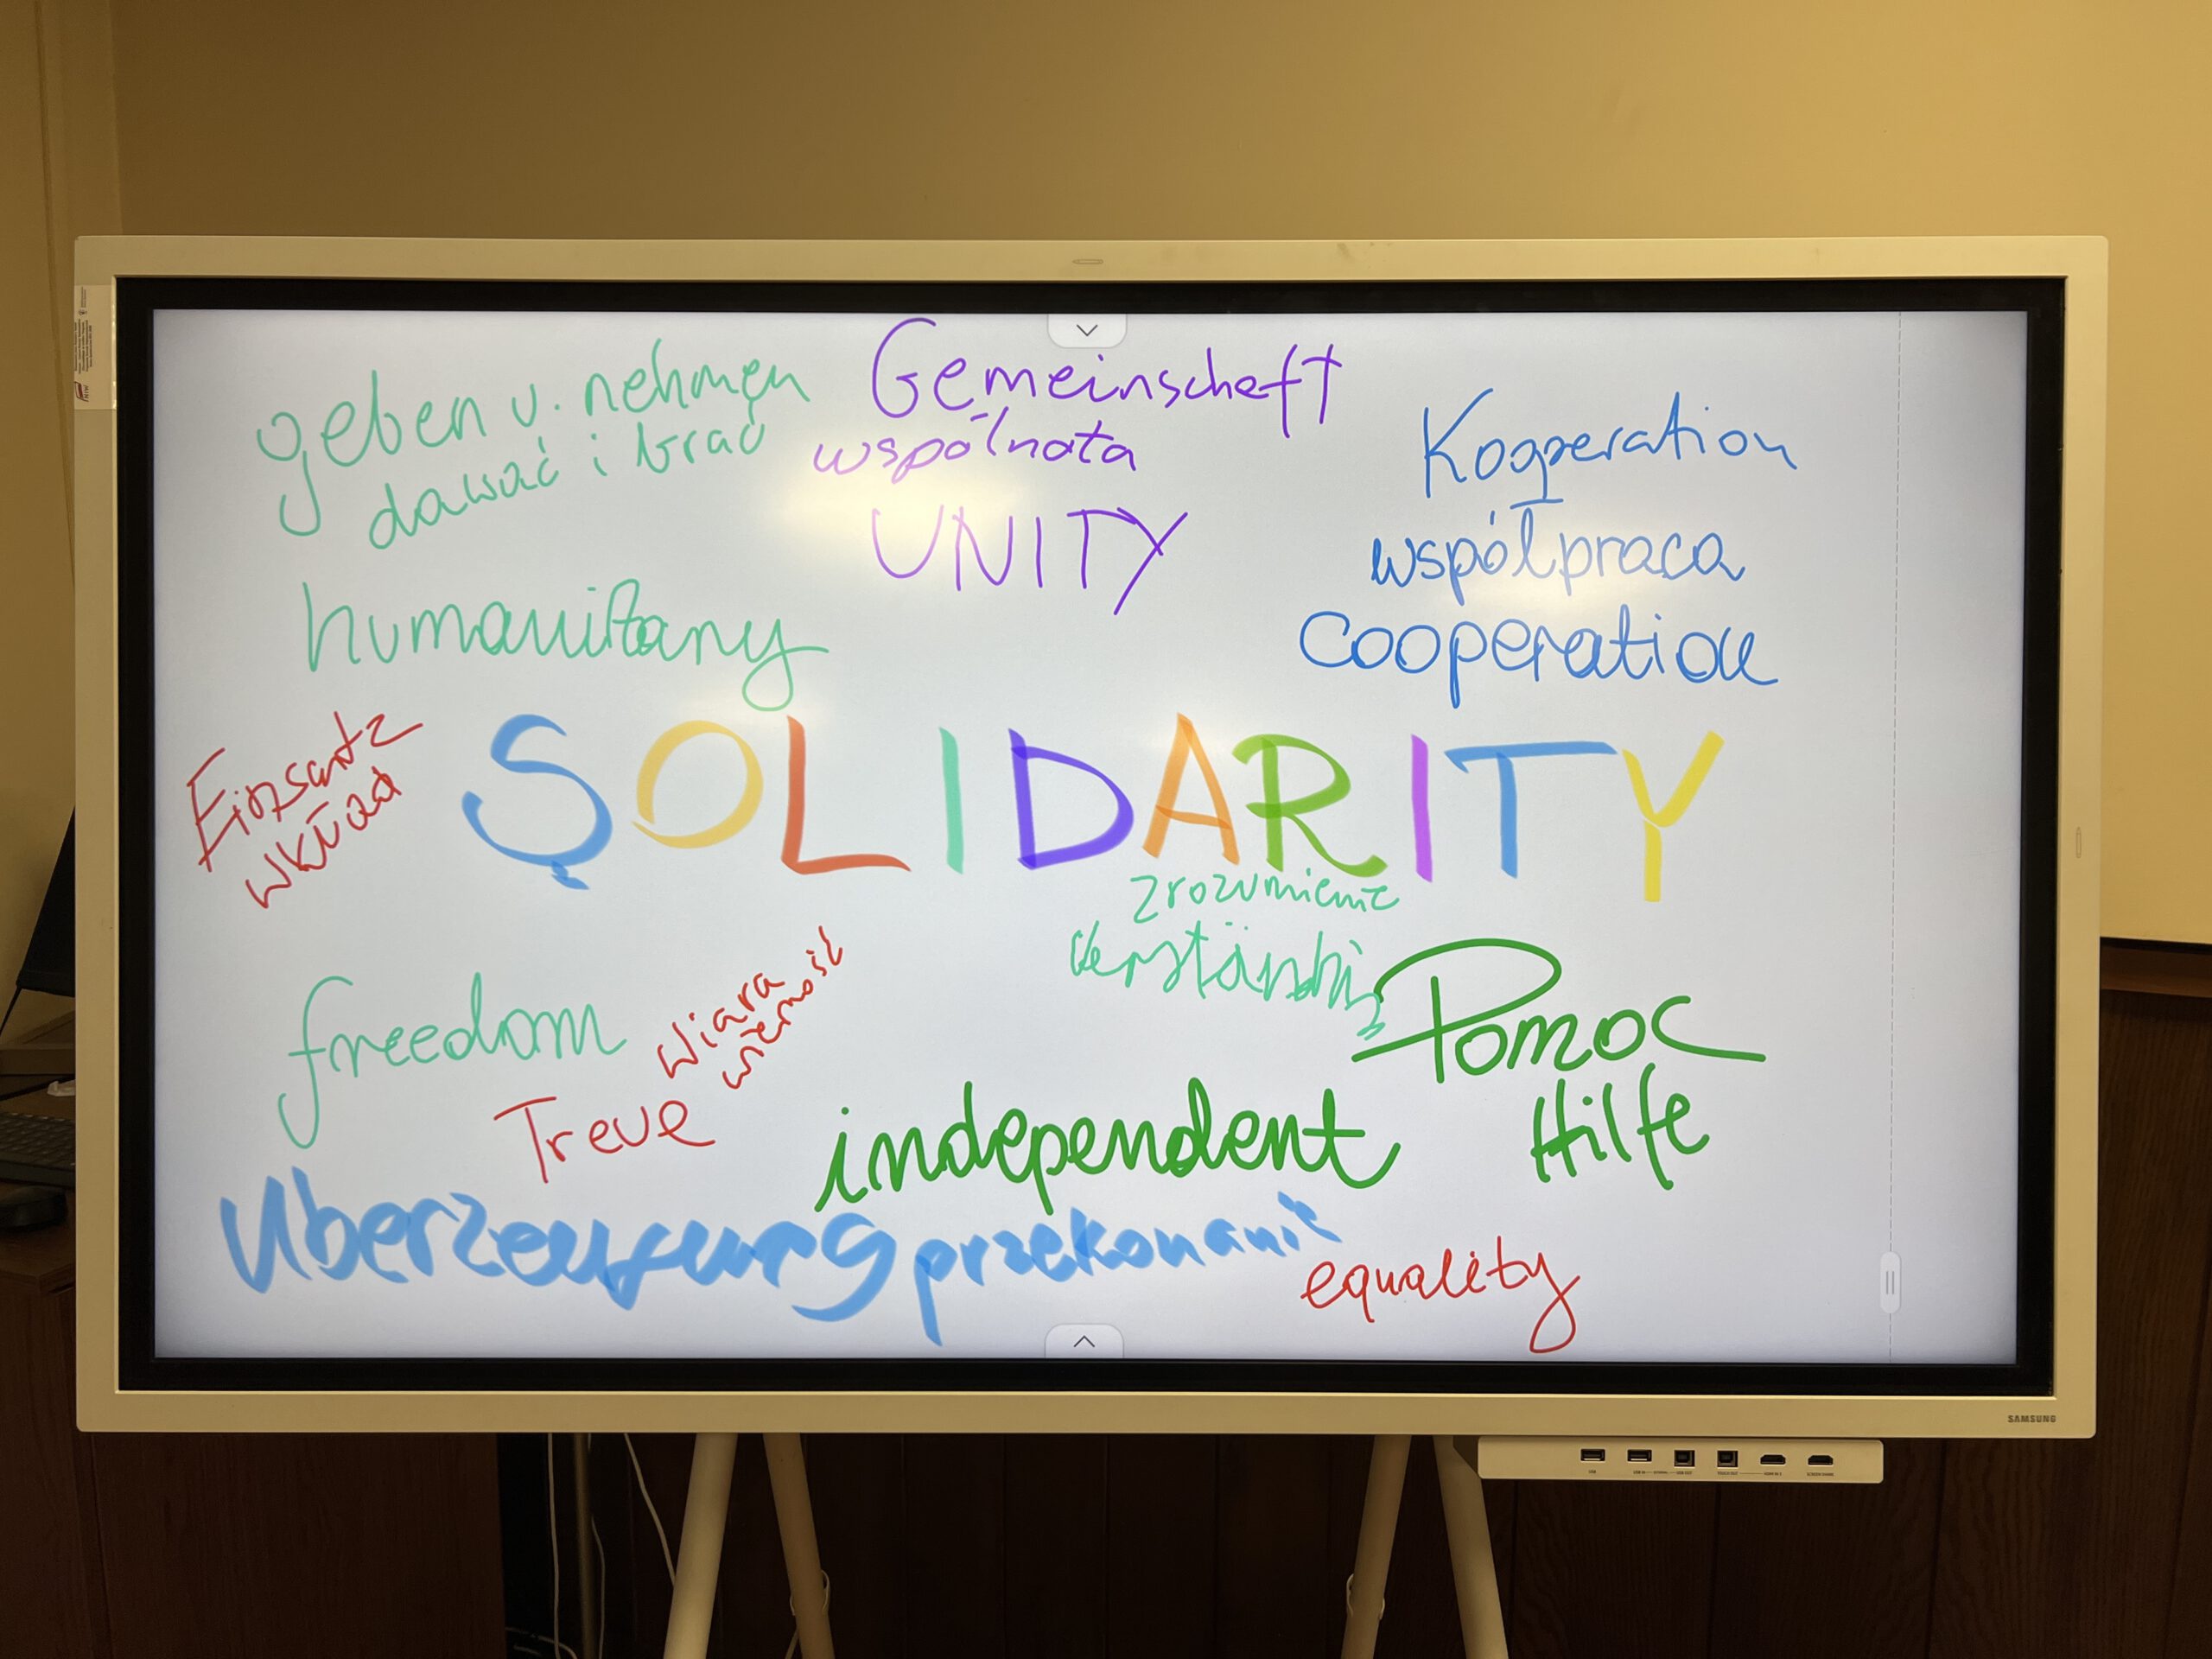 geben u. nehmen
dawać i brać
Gemeinschaft
wspólnota
UNITY
Kooperation
współpraca
cooperation
humanitary
Einsatz
wkład
SOLIDARITY
zrozumienie
Verständnis
freedom
wiara
wierność
Treue
Pomoc
Hilfe
independent
Überzeugung przekonanie
equality
SAMSUNG